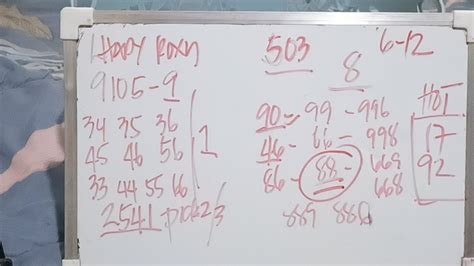 HAPPY ROXN
9105-9
34 35 36
45 46 56 1
33 44 55 66
2541-PICK2/3
503 6-12
8
90-99-996
46-66-998
86-88-669
668
889 888
HOT
17
92